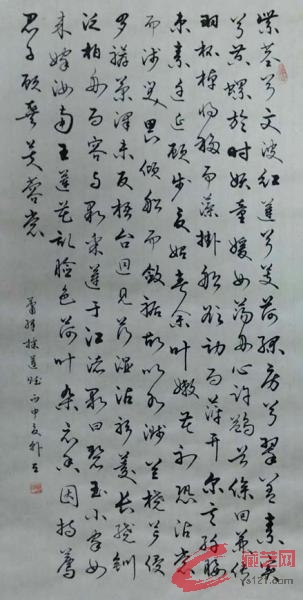 紫茎兮文波红莲兮芰荷绿房兮翠盖素实
兮黄螺於时妖童媛女荡舟心许鹢首徐回兼传
羽杯棹将移而藻挂船欲动而萍开尔其纤腰
束素迁延顾步夏始春余叶嫩花初恐沾裳
而浅笑畏倾船而敛裾故以水溅兰桡芦侵
罗褠菊泽未反梧台迥见荇湿沾衫菱长绕钏
泛柏舟而容与歌采莲于江渚歌曰碧玉小家女
来嫁汝南王莲花乱脸色荷叶杂衣香因持荐
君子愿袭芙蓉裳
萧绎採莲赋丙申夏
ys121.com